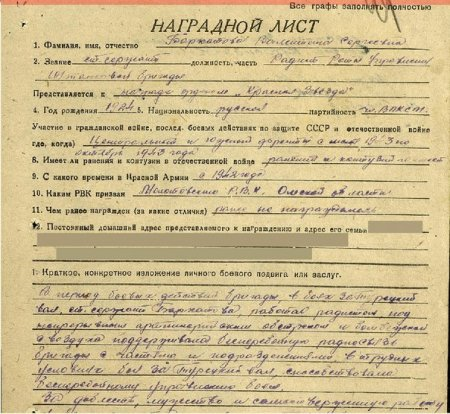 Все графы заполнять полностью
НАГРАДНОЙ ЛИСТ
1. Фамилия, имя, отчество Бархатова Валентина Сергеевна
2. Звание ст. сержант должность, часть Радист Роты Управления
бригады
Представляется к награде орденом „Красная Звезда“
4. Год рождения 1924 5. Национальность русская партийность чл. ВЛКСМ
Участие в гражданской войне, послед. боевых действиях по защите СССР и отечественной войне
где, когда)
октябрь 1943 года
8. Имеет ли ранения и контузии в отечественной войне ранений и контузий не имеет
9. С какого времени в Красной Армии с 1942 года
10. Каким РВК призван Молотовским Р.В.К. Омской области
11. Чем ранее награжден (за какие отличия) ранее не награждалась
12. Постоянный домашний адрес представляемого к награждению и адрес его семьи
I. Краткое, конкретное изложение личного боевого подвига или заслуг.
В период боевых действий бригады в боях за Турецкий
вал, ст. сержант Бархатова, работая радистом под
непрерывным артиллерийским обстрелом и бомбежкой
с воздуха поддерживала бесперебойную радиосвязь
бригады с частями и подразделениями в трудных
условиях боя за Турецкий вал, способствовала
бесперебойному управлению боем.
За доблесть, мужество и самоотверженную работу